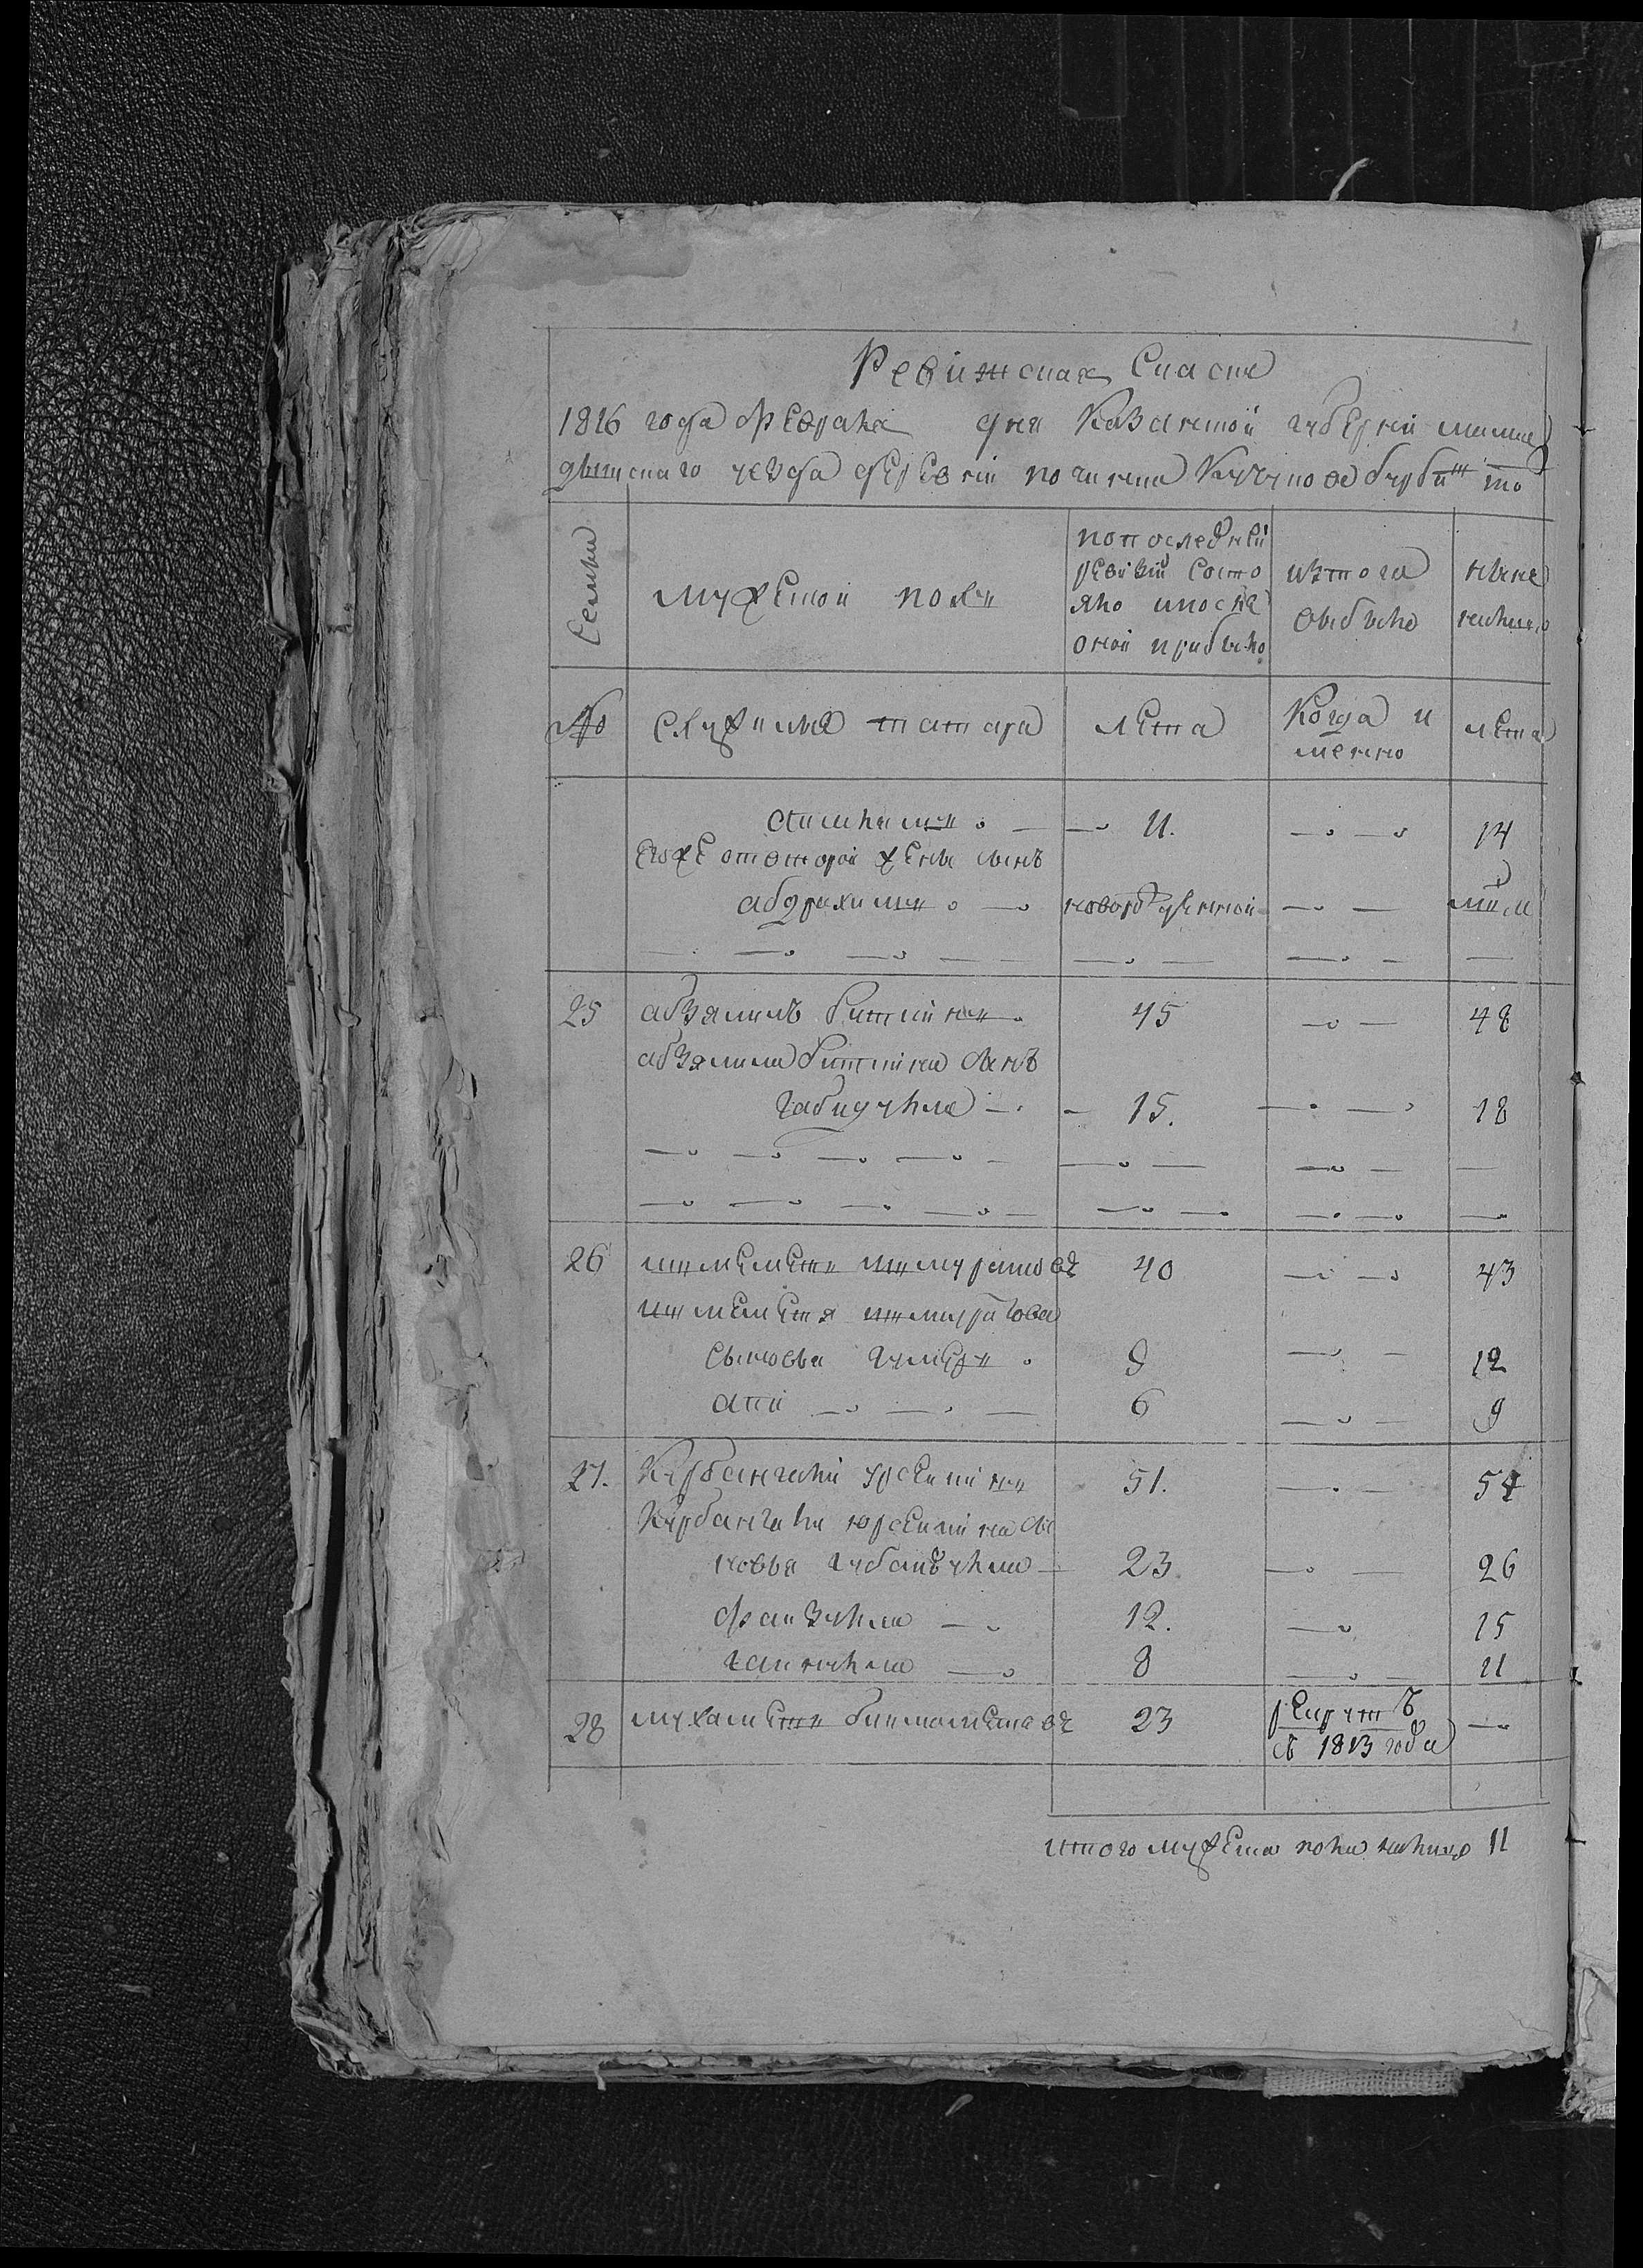 Ревижская Скаска
1816 года февраля дня Казанской губернии мама
дышскаго уезда деревни починка Кучуково бурби то
Семьи
мужеской полъ
по последней
ревизии состо
яло и после
оной прибыло
из того
выбыло
ныне
налицо
№
служилые татара
лета
Когда и
менно
лета
11.
14
его же от второй жены сынъ
абдрахимъ
новорожденной
25 абзялилъ 45 48
абзялила сынъ
габидулла 15. 18
26 ишмеметь ишмуратовъ 40 43
ишмеметя ишмуратова
сыновья гумеръ 9 12
апи 6 9
27. Курбангали 51. 54
Курбангали сы
новья губайдулла 23 26
файзулла 12. 15
гайнулла 8 11
28 мухаметь бикмаметовъ 23 рекрутъ
съ 1813 года
итого мужеска пола налицо 11